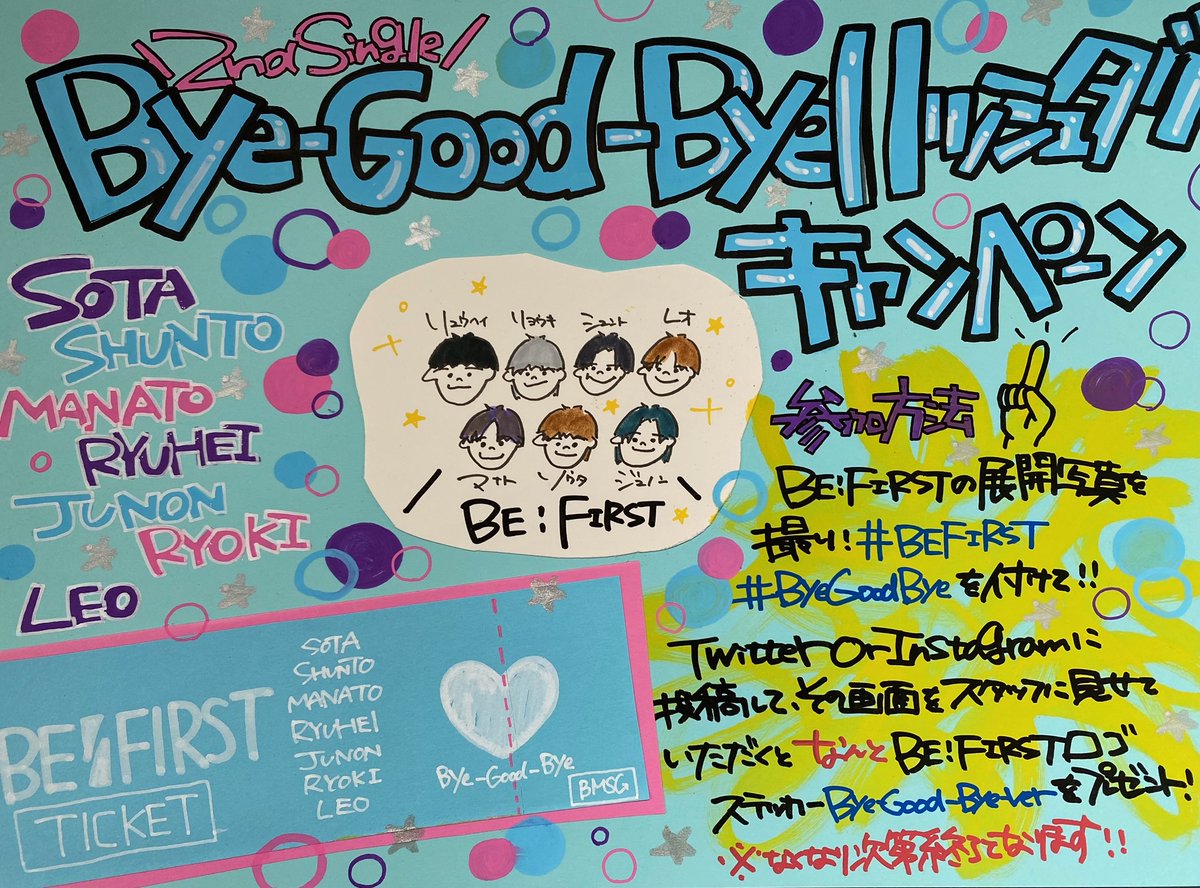 2nd Single
Bye-Good-Bye ハッシュタグ
キャンペーン
SOTA
SHUNTO
MANATO
RYUHEI
JUNON
RYOKI
LEO
リュウヘイ リョウキ シュント レオ
マナト ソウタ ジュノン
BE:FIRST
参加方法
BE:FIRSTの展開写真を
撮り!#BEFIRST
#ByeGoodByeを付けて!!
Twitter or Instagramに
投稿して、その画面をスタッフに見せて
いただくと なんと BE:FIRSTロゴ
ステッカーBye-Good-Bye verをプレゼント!
※なくなり次第終了となります!!
BE:FIRST
TICKET
SOTA
SHUNTO
MANATO
RYUHEI
JUNON
RYOKI
LEO
Bye-Good-Bye
BMSG